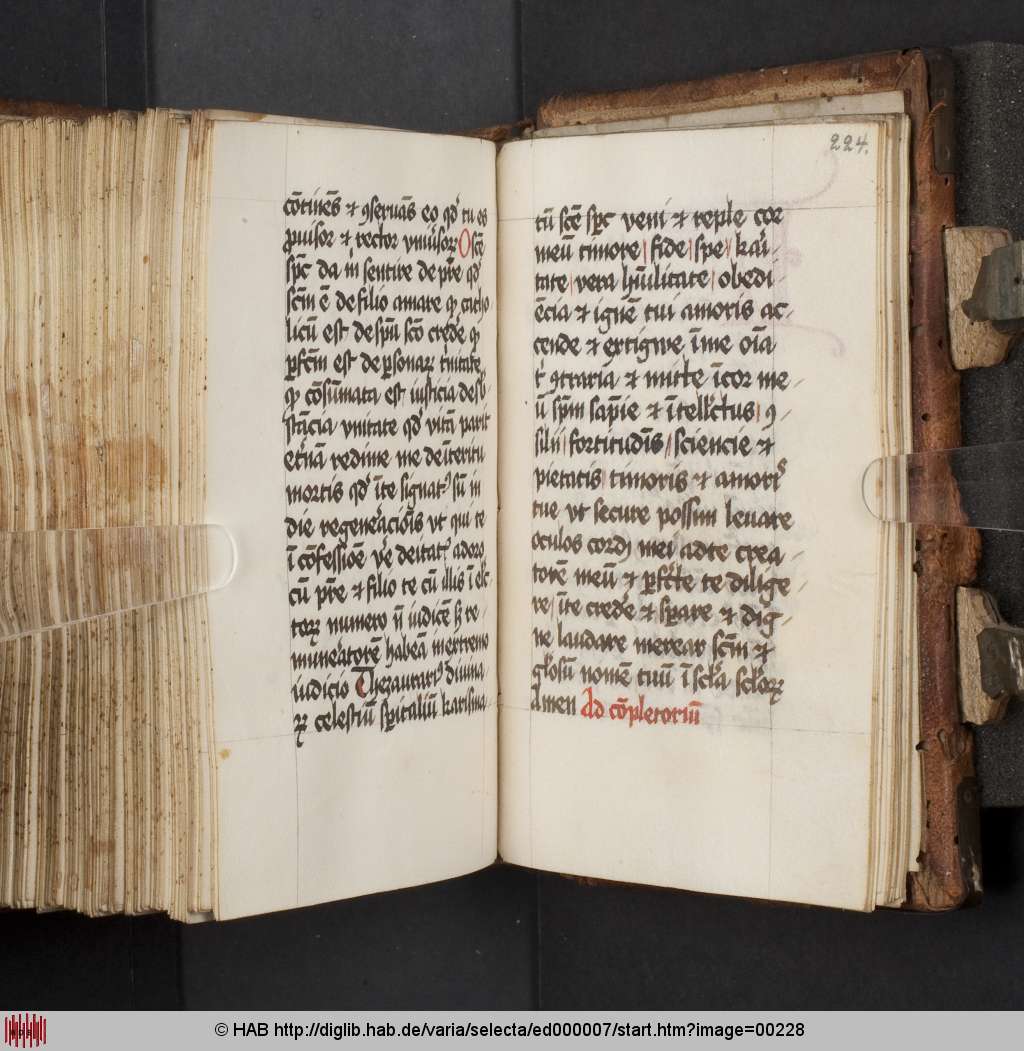 cōtinēs ⁊ ꝯseruās eo qd' tu es
ꝓuisor ⁊ rector vniu'sorꝝ O scē
spc̄ da m' sentire de pr̄e qd'
scm̄ ē de filio amare qͥ catho
licū est de spū scō crede' qͥ
pfcm̄ est de psonarꝝ tnitate
qͥ cōsūmata est iusticia de sb
stācia vnitate qd' vitā parit
et'nā redime me de int'eritu
mortis qd' īte signatꝰ sū in
die regenera'cionis vt qui te
ī cōfessione ve' deitat' adoro
cū pr̄e ⁊ filio te cū illis ī elc
torꝝ numero nō iudicē sꝫ re
munea'torē habeā in extremo
iudicio Thezaurariꝰ diuina
rꝝ celestiū spitaliū karisma
224.
tū scē spc̄ veni ⁊ reple cor
meū timore / fide / spe / kari
tate / vera hūilitate / obedi
ēcia ⁊ ignē tui amoris ac
cende ⁊ extigwe ī me oīa
t' ꝯtraria ⁊ mitte ī cor me
ū spm̄ sapīe ⁊ ītell'ctus / ꝯ
silii / fortitudīs / sciencie ⁊
pietatis / timoris ⁊ amor'
tue vt secure possim leuare
oculos cord' mei ad te crea
torē meū ⁊ pfc̄te te dilige
re / īte crede' ⁊ spare ⁊ dig
ne laudare merear scm̄ ⁊
gl'osū nomē tuū ī scl'a scl'orꝝ
Amen Ad cōpletoriū
© HAB http://diglib.hab.de/varia/selecta/ed000007/start.htm?image=00228